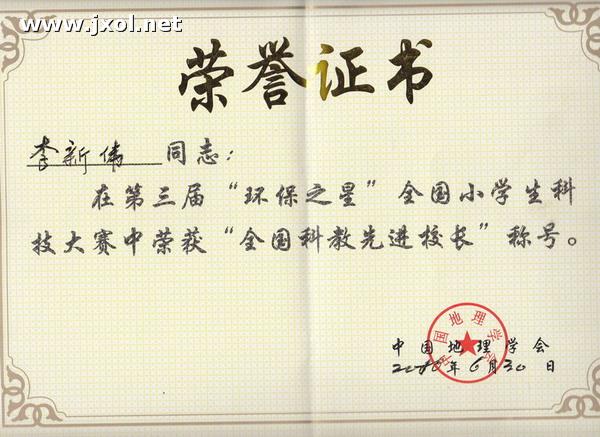 www.jxol.net
荣誉证书
李新伟 同志：
在第三届“环保之星”全国小学生科
技大赛中荣获“全国科教先进校长”称号。
中国地理学会
中国地理学会
年6月30日